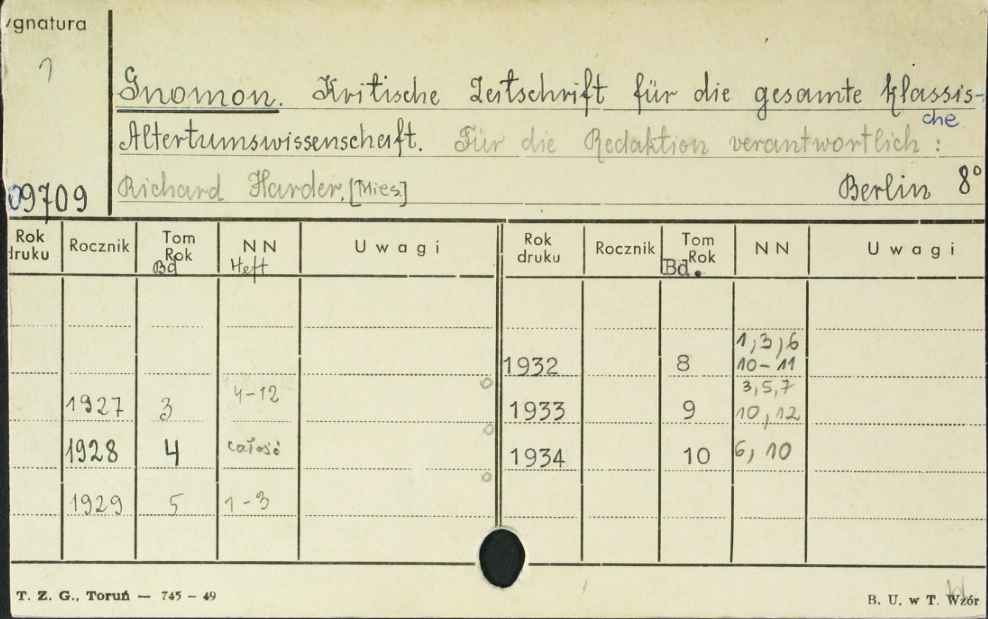 ygnatura
1
Gnomon. Kritische Zeitschrift für die gesamte klassis-
che
Altertumswissenschaft. Für die Redaktion verantwortlich:
09709 Richard Harder. [Mies.] Berlin 8°
Rok druku Rocznik Tom Rok Bd NN Heft Uwagi Rok druku Rocznik Tom Rok Bd. NN Uwagi
1,3,6
1932 8 10-11
1927 3 4-12 3,5,7
1933 9 10,12
1928 4 całość 1934 10 6, 10
1929 5 1-3
T. Z. G., Toruń — 745 – 49 B. U. w T. Wzór